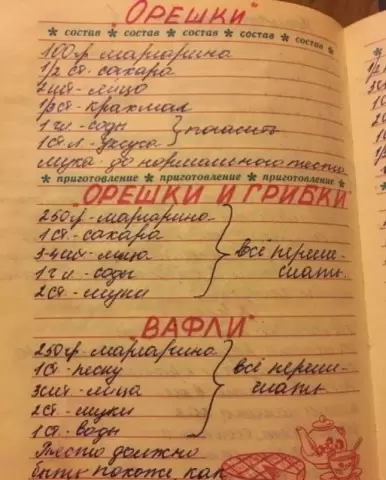 "ОРЕШКИ"
* состав * состав * состав * состав * состав
100гр маргарина
1/2 ст. сахара
2 шт - яйцо
1/2 ст - крахмал
1 ч л - соды } погасить
1 ст. л - уксуса
мука до нормального теста
* приготовление * приготовление * приготовление *
"ОРЕШКИ И ГРИБКИ"
250гр - маргарина
1 ст. - сахара
3-4 шт - яйца } всё переме-
1 ч л - соды шать.
2 ст - муки
"ВАФЛИ"
250гр - маргарина
1 ст - песку } всё переме-
3 шт - яйца шать
2 ст - муки
1 ст - воды
Тесто должно
быть похоже как